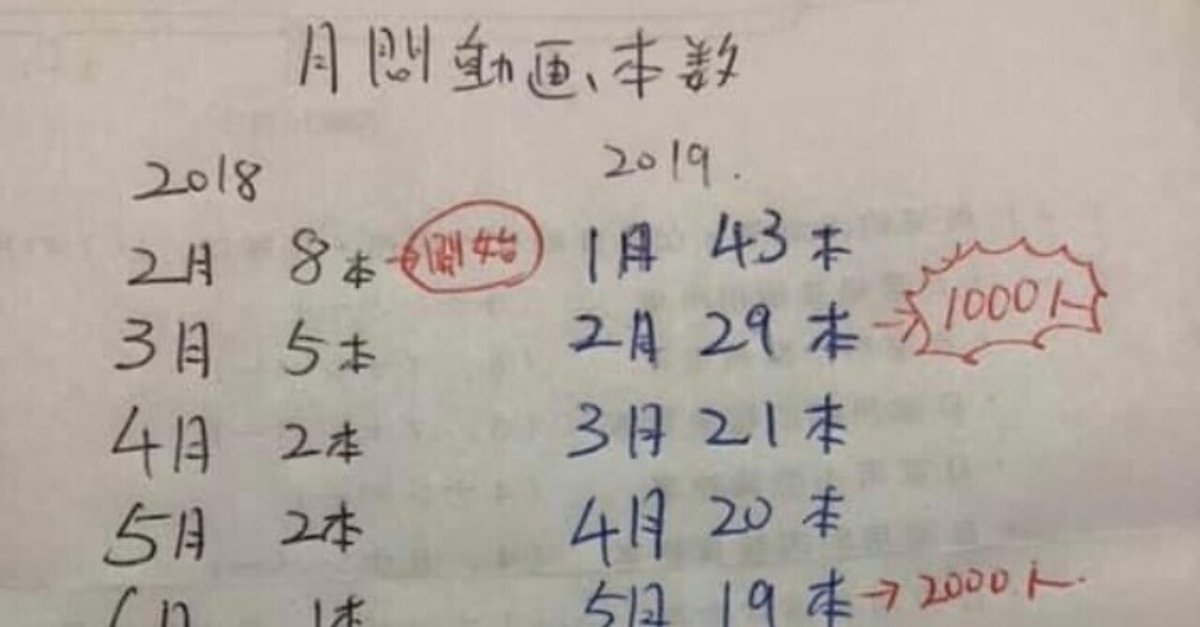 月間動画、本数
2018
2月 8本→開始
3月 5本
4月 2本
5月 2本
6月 1本
2019.
1月 43本
2月 29本→1000人
3月 21本
4月 20本
5月 19本→2000人